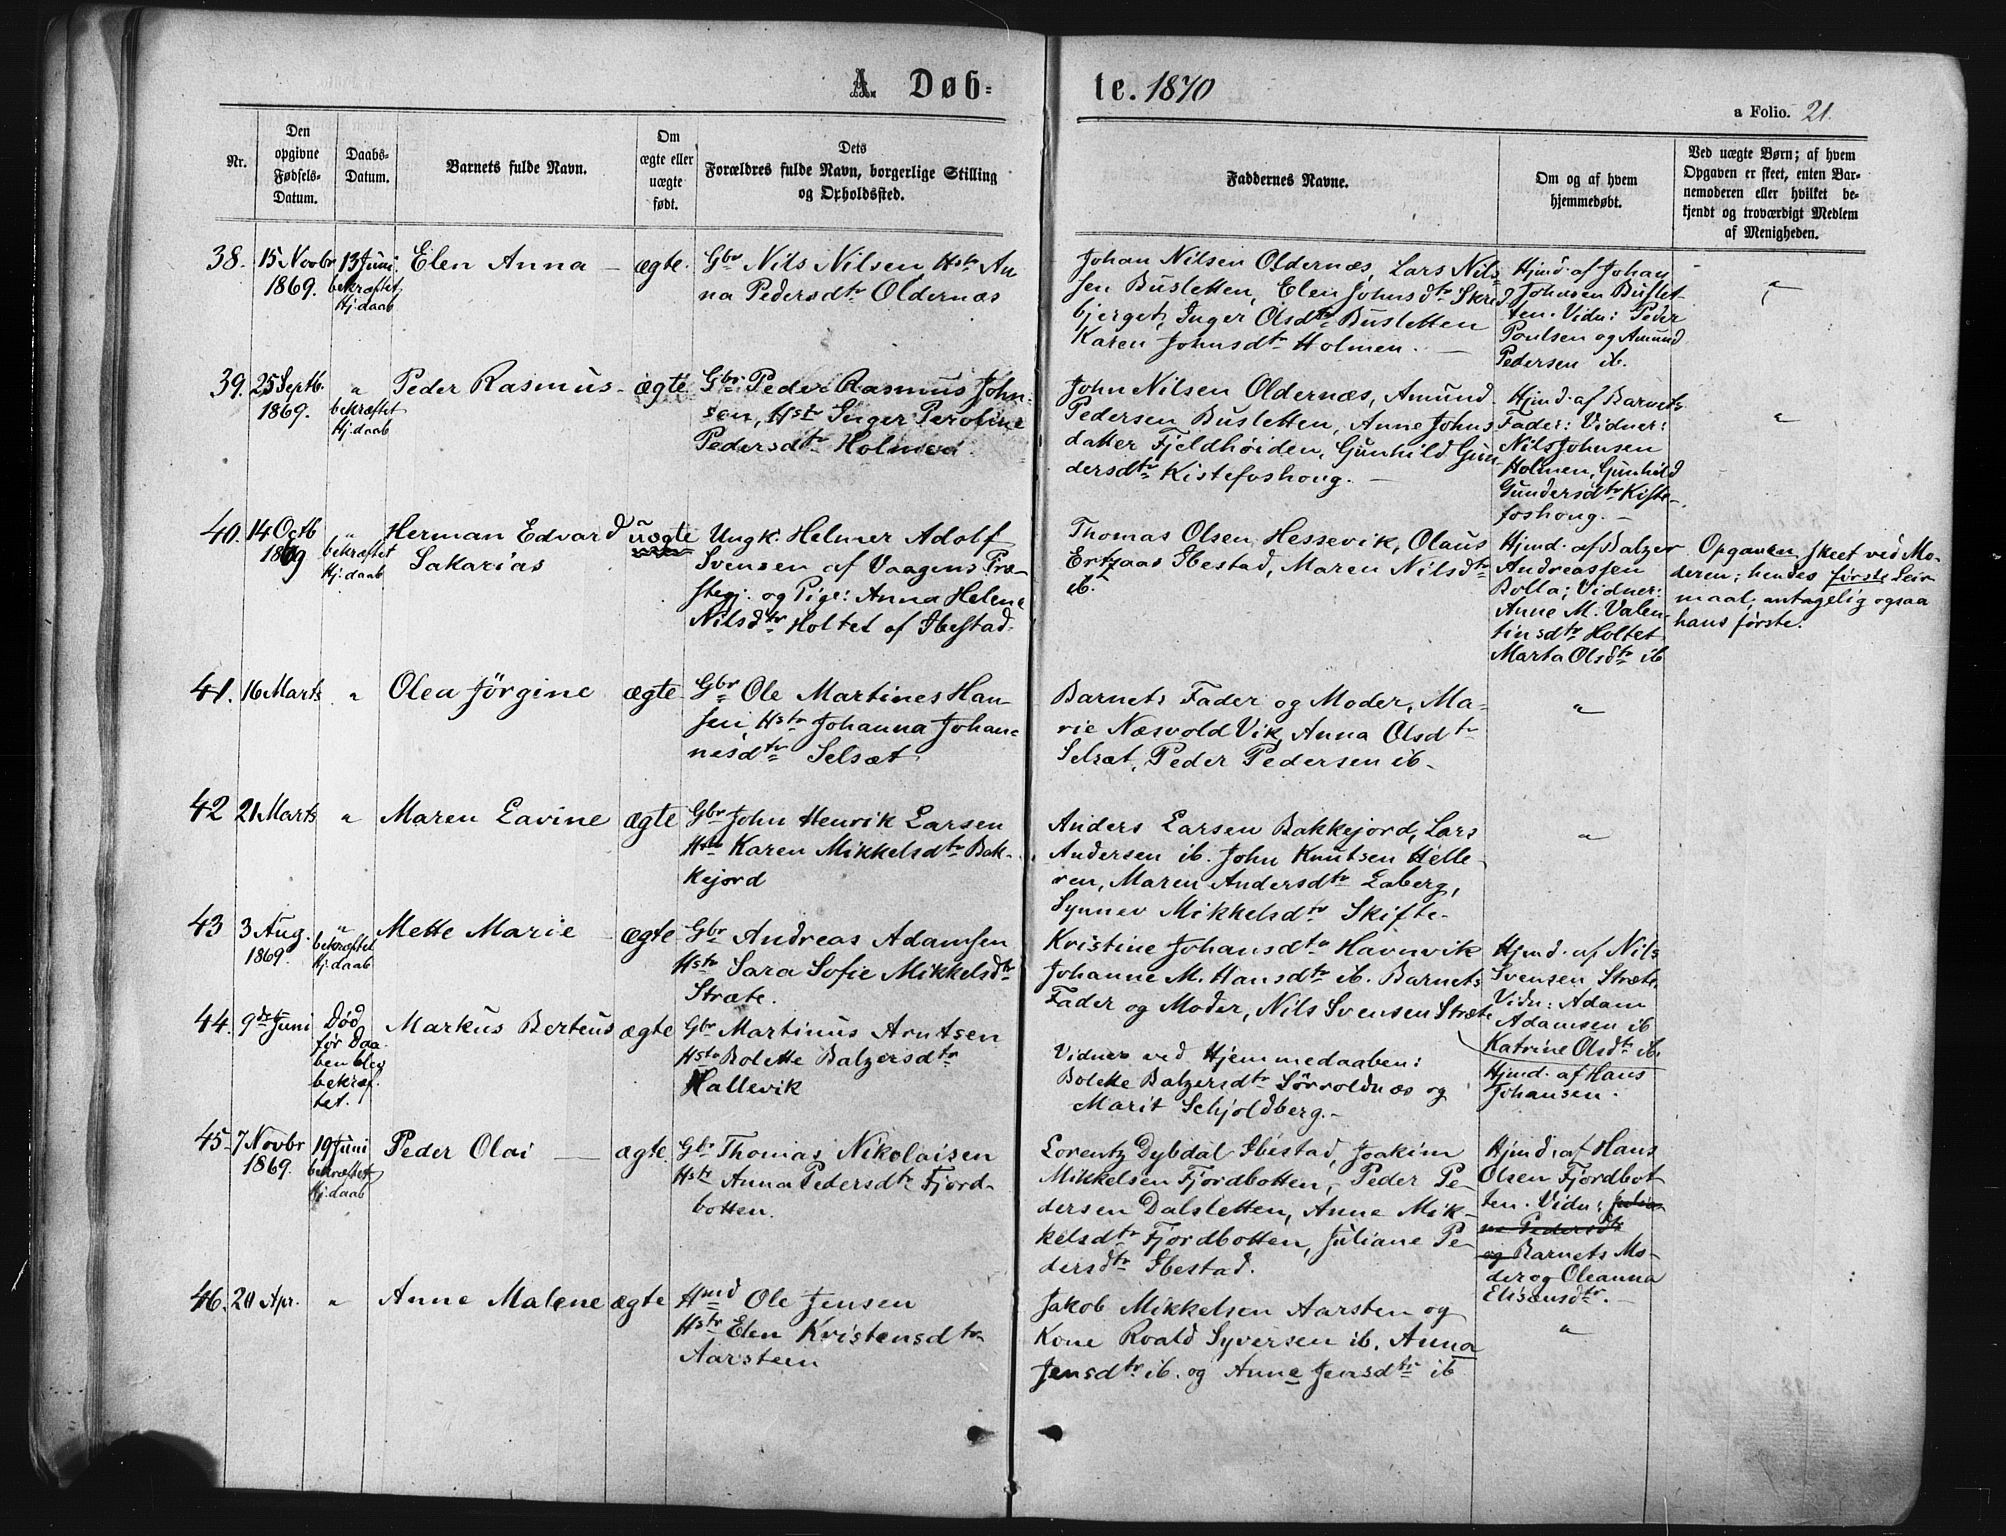 A. Døb=
te. 1870
a Folio. 21.
Nr.
Den opgivne Fødsels-Datum.
Daabs-Datum.
Barnets fulde Navn.
Om ægte eller uægte født.
Dets Forældres fulde Navn, borgerlige Stilling og Opholdssted.
Faddernes Navne.
Om og af hvem hjemmedøbt.
Ved uægte Børn; af hvem
Opgaven er skeet, enten Bar-
nemoderen eller hvilket be-
kjendt og troværdigt Medlem
af Menigheden.
38. 15 Novbr 1869. 13 Juni bekræftet Hj.daab
Elen Anna – ægte.
Gbr Nils Nilsen, Hstr An-
na Pedersdtr Oldernæs
Johan Nilsen Oldernæs, Lars Nils-
sen Busletten, Elen Johnsdtr Skred
bjerget, Inger Olsdtr Busletten
Karen Johnsdtr Holmen. –
Hjmd. af Johan
Johnsen Buslet-
ten. Vidn: Peder
Poulsen og Amund
Pedersen ib.
"
39. 25 Septb. 1869. " bekræftet Hj.daab
Peder Rasmus – ægte
Gbr Peder Rasmus John-
sen, Hstr Inger Peroline
Pedersdtr Holmen.
John Nilsen Oldernæs, Amund
Pedersen Busletten, Anne Johns
datter Fjeldhøiden, Gunhild Gun
dersdtr Kistefoshoug. –
Hjmd. af Barnets
Fader: Vidner:
Nils Johnsen
Holmen, Gunhild
Gundersdtr Kiste-
foshoug. –
"
40. 14 Octb 1869 " bekræftet Hj.daab
Herman Edvard
Sakarias
uægte
Ungk. Helmer Adolf
Svensen af Vaagens Præ-
stegj. og Pige: Anna Helene
Nilsdtr Holtet af Ibestad.
Thomas Olsen Hessevik, Olaus
Ertzaas Ibestad, Maren Nilsdtr
ib.
Hjmd. af Balzer
Andreassen
Bolla; Vidner:
Anne M. Valen-
tinsdtr Holtet
Marta Olsdtr ib
Opgaven skeet ved Mo-
deren; hendes første Leir
maal, antagelig ogsaa
hans første.
41. 16 Marts "
Olea Jørgine ægte
Gbr Ole Martines Han-
sen, Hstr Johanna Johan-
nesdtr Selsæt
Barnets Fader og Moder, Ma-
rie Næsvold Vik, Anna Olsdtr
Selsæt, Peder Pedersen ib.
"
42 21 Marts "
Maren Lavine ægte
Gbr John Henrik Larsen
Hstr Karen Mikkelsdtr Bak-
kejord
Anders Larsen Bakkejord, Lars
Andersen ib. John Knutsen Helle-
ren, Maren Andersdtr Laberg,
Synnev Mikkelsdtr Skifte.
"
43 3 Aug. 1869. " bekræftet Hj.daab
Mette Marie – ægte
Gbr Andreas Adamsen
Hstr Sara Sofie Mikkelsdtr
Stræte.
Kristine Johansdtr Havnvik
Johanne M. Hansdtr ib. Barnets
Fader og Moder, Nils Svensen Stræte
Hjmd. af Nils
Svensen Stræte
Vidn: Adam
Adamsen ib
Katrine Olsdtr ib.
44. 9de Juni
Død
før Daa
ben blev
bekræf-
tet.
Markus Berteus ægte
Gbr Martinus Arntsen
Hstr Bolette Balzersdtr
Hallevik
Vidner ved Hjemmedaaben:
Bolette Balzersdtr Sörvoldnæs og
Marit Schjoldberg. –
Hjmd. af Hans
Johansen.
45. 7 Novbr 1869. 19 Juni bekræftet Hj.daab
Peder Olai – ægte.
Gbr Thomas Nikolaisen
Hstr Anna Pedersdtr Fjord-
botten.
Lorentz Dybdal Ibestad, Joakim
Mikkelsen Fjordbotten, Peder Pe-
dersen Dalsletten, Anne Mik-
kelsdtr Fjordbotten, Juliane Pe-
dersdtr Ibestad.
Hjmd. af Hans
Olsen Fjordbot-
ten. Vidn: Julia-
ne Pedersdtr
og Barnets Mo-
der og Oleanna
Eliseusdtr. –
46. 20 Apr. "
Anne Malene ægte
Hmd Ole Jensen
Hstr Elen Kristensdtr
Aarsteen
Jakob Mikkelsen Aarsten og
Kone Roald Syversen ib. Anna
Jensdtr ib. og Anne Jensdtr ib
"